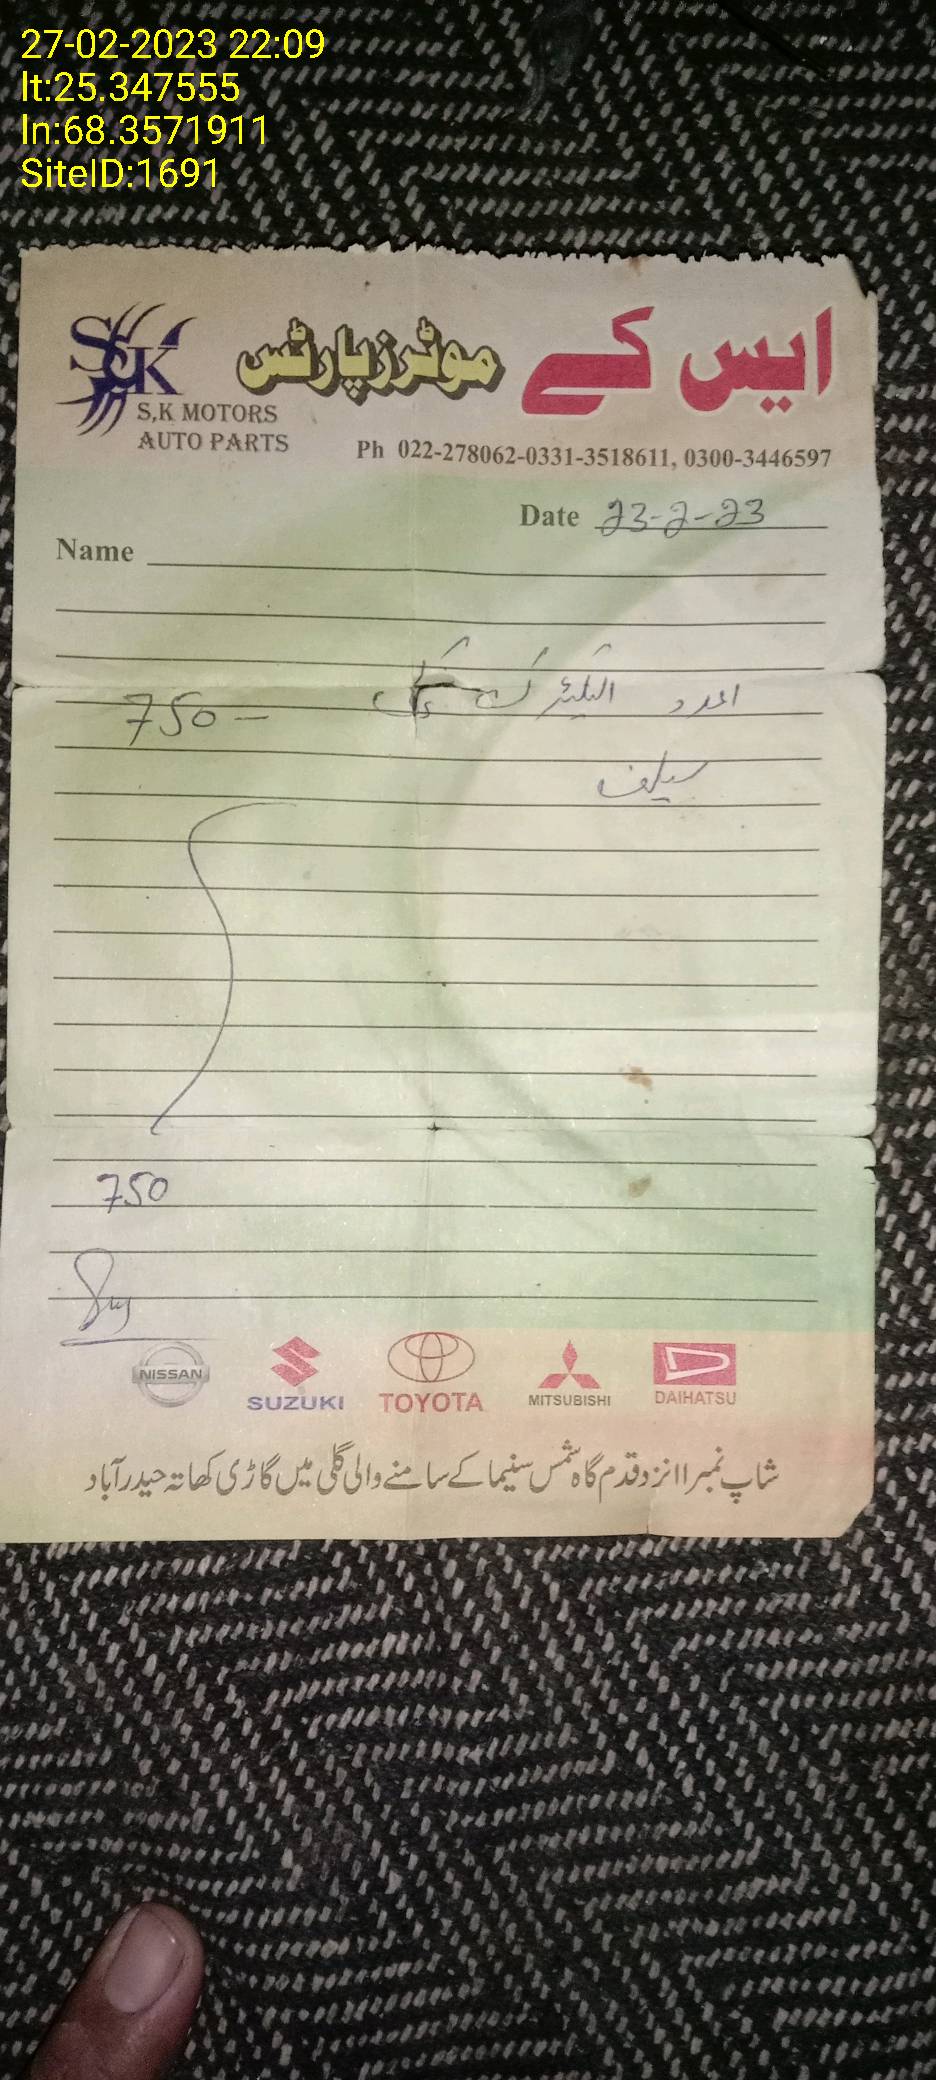 27-02-2023 22:09
lt:25.347555
ln:68.3571911
SiteID:1691
ایس کے موٹرز پارٹس
SK
S,K MOTORS
AUTO PARTS
Ph 022-278062-0331-3518611, 0300-3446597
Date 23-2-23
Name
1عدد الیکٹرک 750-
سیلف
750
NISSAN SUZUKI TOYOTA MITSUBISHI DAIHATSU
شاپ نمبر 1 نزد قدم گاہ شمس سنیما کے سامنے والی گلی میں گاڑی کھاتہ حیدرآباد